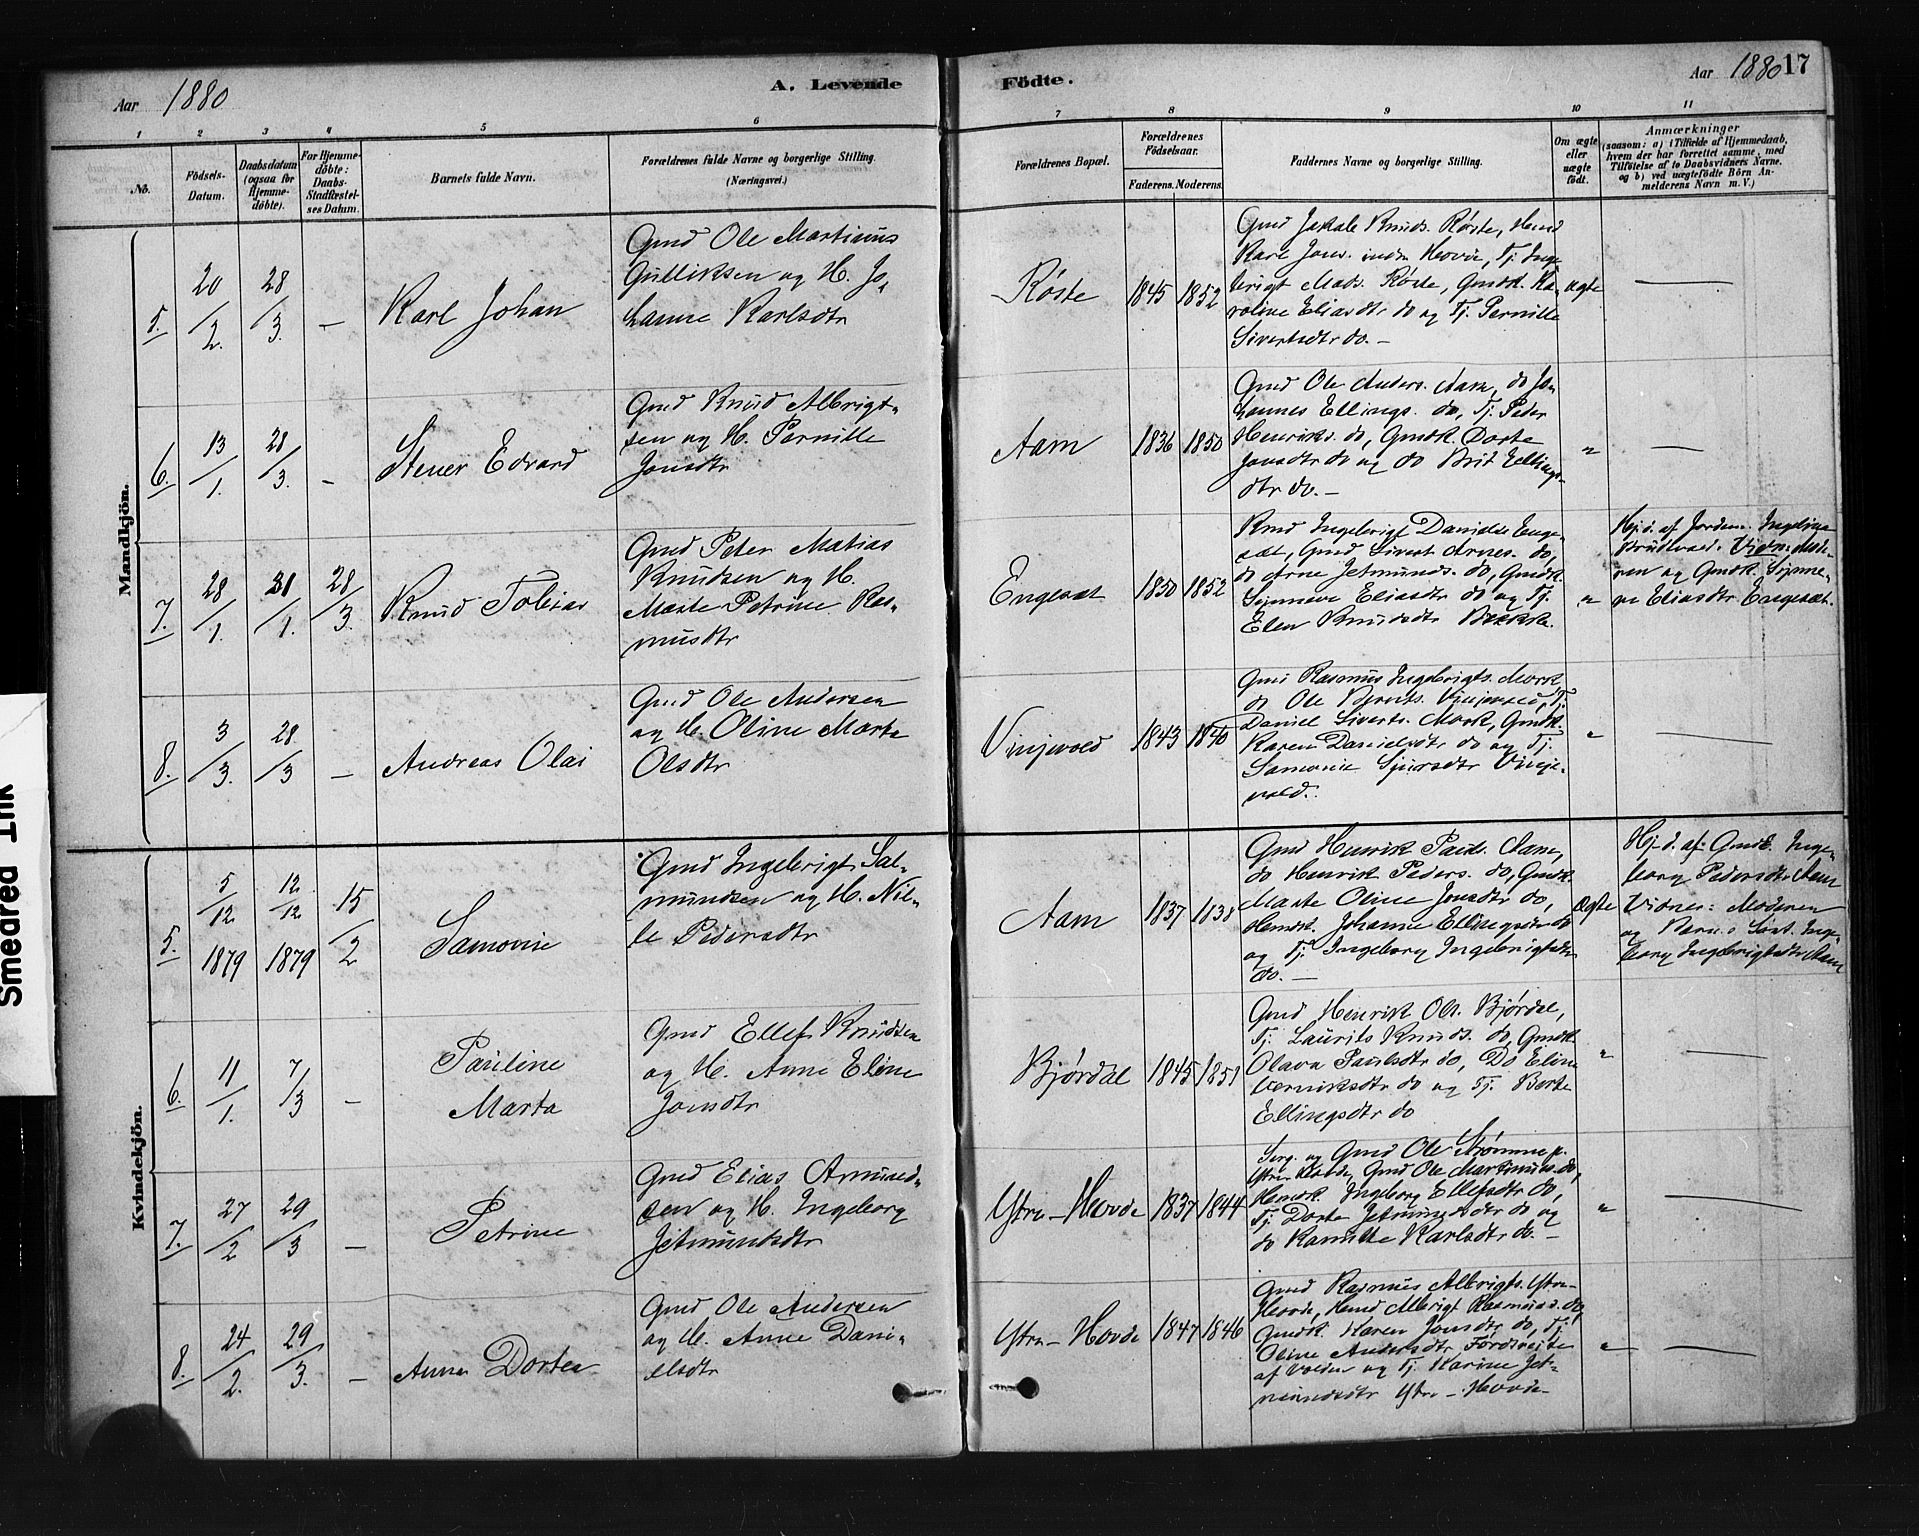 Aar 1880
A. Levende
Födte.
Aar 1880 17
1 2 3 4 5 6 7 8 9 10 11
No.
Födsels-
Datum.
Daabsdatum
(ogsaa for
Hjemme-
döbte).
For Hjemme-
döbte:
Daabs-
Stadfæstel-
ses Datum.
Barnets fulde Navn.
Forældrenes fulde Navne og borgerlige Stilling.
(Næringsvei.)
Forældrenes Bopæl.
Forældrenes
Födselsaar.
Faderens. Moderens.
Faddernes Navne og borgerlige Stilling.
Om ægte
eller
uægte
födt.
Anmærkninger
(saasom: a) i Tilfælde af Hjemmedaab,
hvem der har forrettet samme, med
Tilföielse af to Daabsvidners Navne.
og b) ved uægtefödte Börn An-
melderens Navn m. V.)
Mandkjön.
5.
20/2.
28/3.
–
Karl Johan
Gmd Ole Martinus
Gulliksen og H. Jo-
hanne Karlsdtr
Røste
1845 1852
Gmd Jakob Knuds. Røste, Hmd
Karl Jons. indre Hovde, Tj. Inge-
brigt Mads. Røste, Gmdk. Ka-
roline Eliasdtr do og Tj. Pernille
Sivertsdtr do. –
ægte
6.
13/1.
28/3.
–
Stener Edvard
Gmd Knud Albrigt-
sen og H. Pernille
Jonsdtr
Aam
1836 1850
Gmd Ole Anders. Aam, do Jo-
hannes Ellings. do, Tj. Peder
Henriks. do, Gmdk. Dorte
Jonsdtr do og do Brit Ellings-
dtr do. –
"
7.
28/1.
31/1.
28/3.
Knud Tobias
Gmd Peter Matias
Knudsen og H.
Marte Petrine Ras-
musdtr
Engesæt
1850 1852
Kmd Ingebrigt Daniels. Enge-
sæt, Gmd Sivert Arnes. do,
do Arne Jetmunds. do, Gmdk.
Synneve Eliasdtr do og Tj.
Elen Knudsdtr Bække.
"
Hj. d. af Jordm. Ingeline
Vidn: Mode-
ren og Gmdk. Synne-
ve Eliasdtr Engesæt.
8.
3/3.
28/3
–
Andreas Olai
Gmd Ole Andersen
og H. Oline Marta
Olsdtr
Vinjevold
1843 1840
Gmd Rasmus Ingebrigts. Mork
do Ole Vinjevold, Tj.
Daniel Siverts. Mork, Gmdk.
Karen Danielsdtr do og Tj.
Samonie Sjursdtr Vinje-
vold.
"
Kvindekjön.
5.
5/12
1879
12/12
1879
15/2
Samonie
Gmd Ingebrigt Sal-
mundsen og H. Nil-
le Pedersdtr
Aam
1837 1838
Gmd Henrik Peds. Aam,
do Henrik Peders. do, Gmdk.
Marte Oline Jonsdtr do,
Hmdk. Johanne Ellingsdtr do
og Tj. Ingeborg Ingebrigtsdtr
do. –
Ægte
Hj. d. af: Gmdk. Inge-
borg Pedersdtr Aam
Vidner: Moderen
og Barnets Søst. Inge-
borg Ingebrigtsdtr Aam
6.
11/1.
7/3
–
Pauline
Marta
Gmd Ellef Knudsen
og H. Anne Eline
Jonsdtr
Bjørdal
1845 1851
Gmd Henrik Ols. Bjørdal,
Tj. Laurits Knuds. do, Gmdk.
Olava Paulsdtr do, Do Eline
Henriksdtr do og Tj. Berte
Ellingsdtr do
"
7.
27/2
29/3
–
Petrine
Gmd Elias Amund-
sen og H. Ingeborg
Jetmundsdtr
Ytre-Hovde
1837 1844
Serg. og Gmd Ole Strømme p.
Ytre Hovde, Gmd Ole Martinus. do,
Hmdk. Ingeborg Ellefsdtr do,
Tj. Dorte Jetmundsdtr do og
do Karlsdtr do. –
"
8.
24/2.
29/3.
–
Anne Dortea
Gmd Ole Andersen
og H. Anne Dani-
elsdtr
Ytre-Hovde
1847 1846
Gmd Rasmus Albrigts. Ytre-
Hovde, Hmd Albrigt Rasmuss. do,
Gmdk. Karen Jonsdtr do, Tj.
Oline Andersdtr
af Volden og Tj. Karine Jet-
mundsdtr Ytre-Hovde
"
Smedred Ink